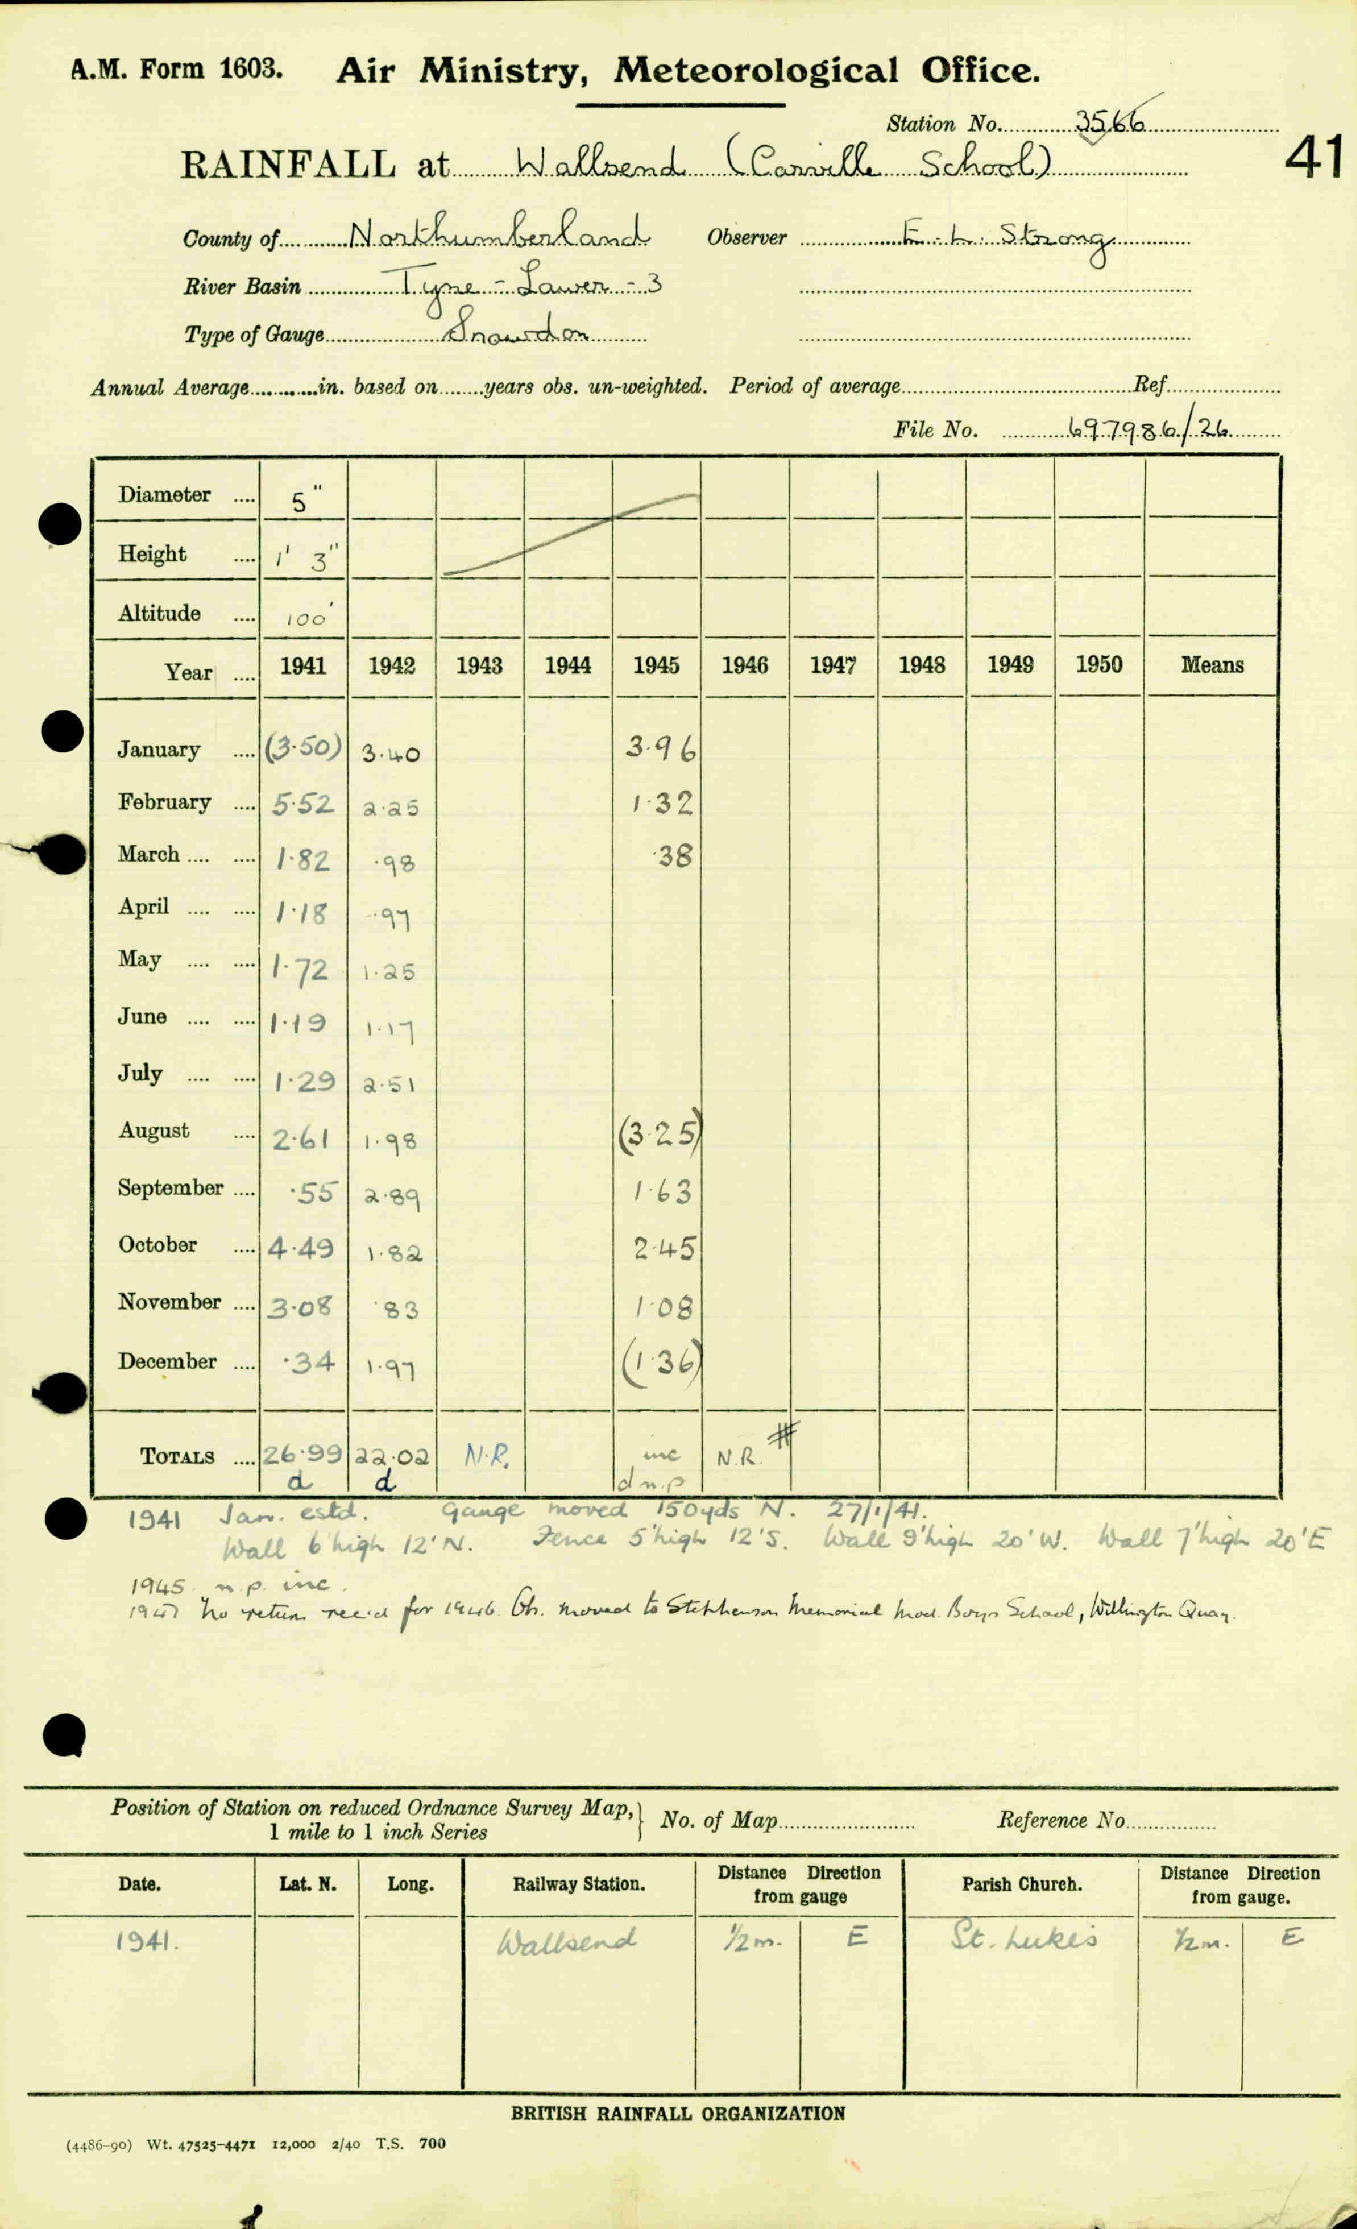 A.M. Form 1603. Air Ministry, Meteorological Office.
Station No. 3566
41
RAINFALL at Wallsend (Carville School)
County of Northumberland Observer E. L. Strong
River Basin Tyne - Lower - 3
Type of Gauge Snowdon
Annual Average in. based on years obs. un-weighted. Period of average Ref.
File No. 697986/26
Diameter 5"
Height 1' 3"
Altitude 100'
Year 1941 1942 1943 1944 1945 1946 1947 1948 1949 1950 Means
January (3.50) 3.40 3.96
February 5.52 2.25 1.32
March 1.82 .98 .38
April 1.18 .97
May 1.72 1.25
June 1.19 1.17
July 1.29 2.51
August 2.61 1.98 (3.25)
September .55 2.89 1.63
October 4.49 1.82 2.45
November 3.08 .83 1.08
December .34 1.97 (1.36)
TOTALS 26.99 22.02 N.R. inc N.R. #
d d d n.p
1941 Jan. estd. Gauge moved 150yds N. 27/1/41.
Wall 6'high 12'N. Fence 5'high 12'S. Wall 9'high 20'W. Wall 7'high 20'E
1945 n.p. inc.
1947 No return rec'd for 1946. Ob. moved to Stephenson Memorial Mod. Boys School, Willington Quay.
Position of Station on reduced Ordnance Survey Map, } No. of Map Reference No.
1 mile to 1 inch Series
Date. Lat. N. Long. Railway Station. Distance Direction from gauge Parish Church. Distance Direction from gauge.
1941. Wallsend 1/2 m. E St. Luke's 1/2 m. E
BRITISH RAINFALL ORGANIZATION
(4486-90) Wt. 47525-4471 12,000 2/40 T.S. 700